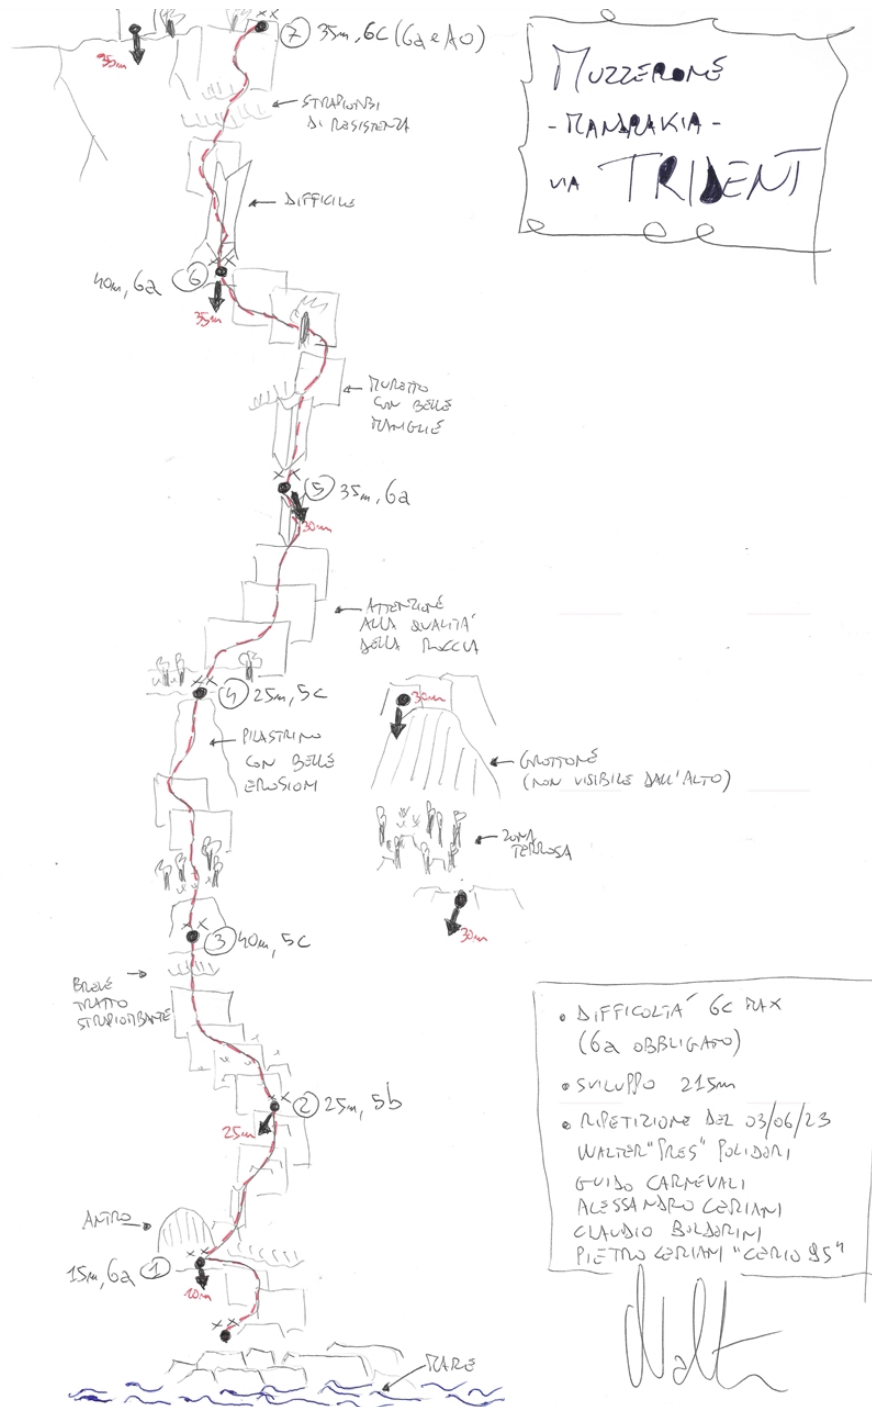 MUZZERONE
- MANDRAKIA -
VIA TRIDENT
7 35m, 6c (6a e A0)
35m
STRAPIOMBI
DI RESISTENZA
DIFFICILE
40m, 6a 6
35m
MURETTO
CON BELLE
MANIGLIE
5 35m, 6a
30m
ATTENZIONE
ALLA QUALITA'
DELLA ROCCIA
4 25m, 5c
PILASTRINO
CON BELLE
EROSIONI
GROTTONE
(NON VISIBILE DALL'ALTO)
ZONA
TERROSA
30m
3 40m, 5c
BREVE
TRATTO
STRAPIOMBANTE
2 25m, 5b
25m
ANTRO
15m, 6a 1
10m
MARE
• DIFFICOLTA' 6c MAX
(6a OBBLIGATO)
• SVILUPPO 215m
• RIPETIZIONE DEL 03/06/23
WALTER "PRES" POLIDORI
GUIDO CARNEVALI
ALESSANDRO CERIANI
CLAUDIO BOLDORINI
PIETRO CERIANI "CERIO 95"
Walter